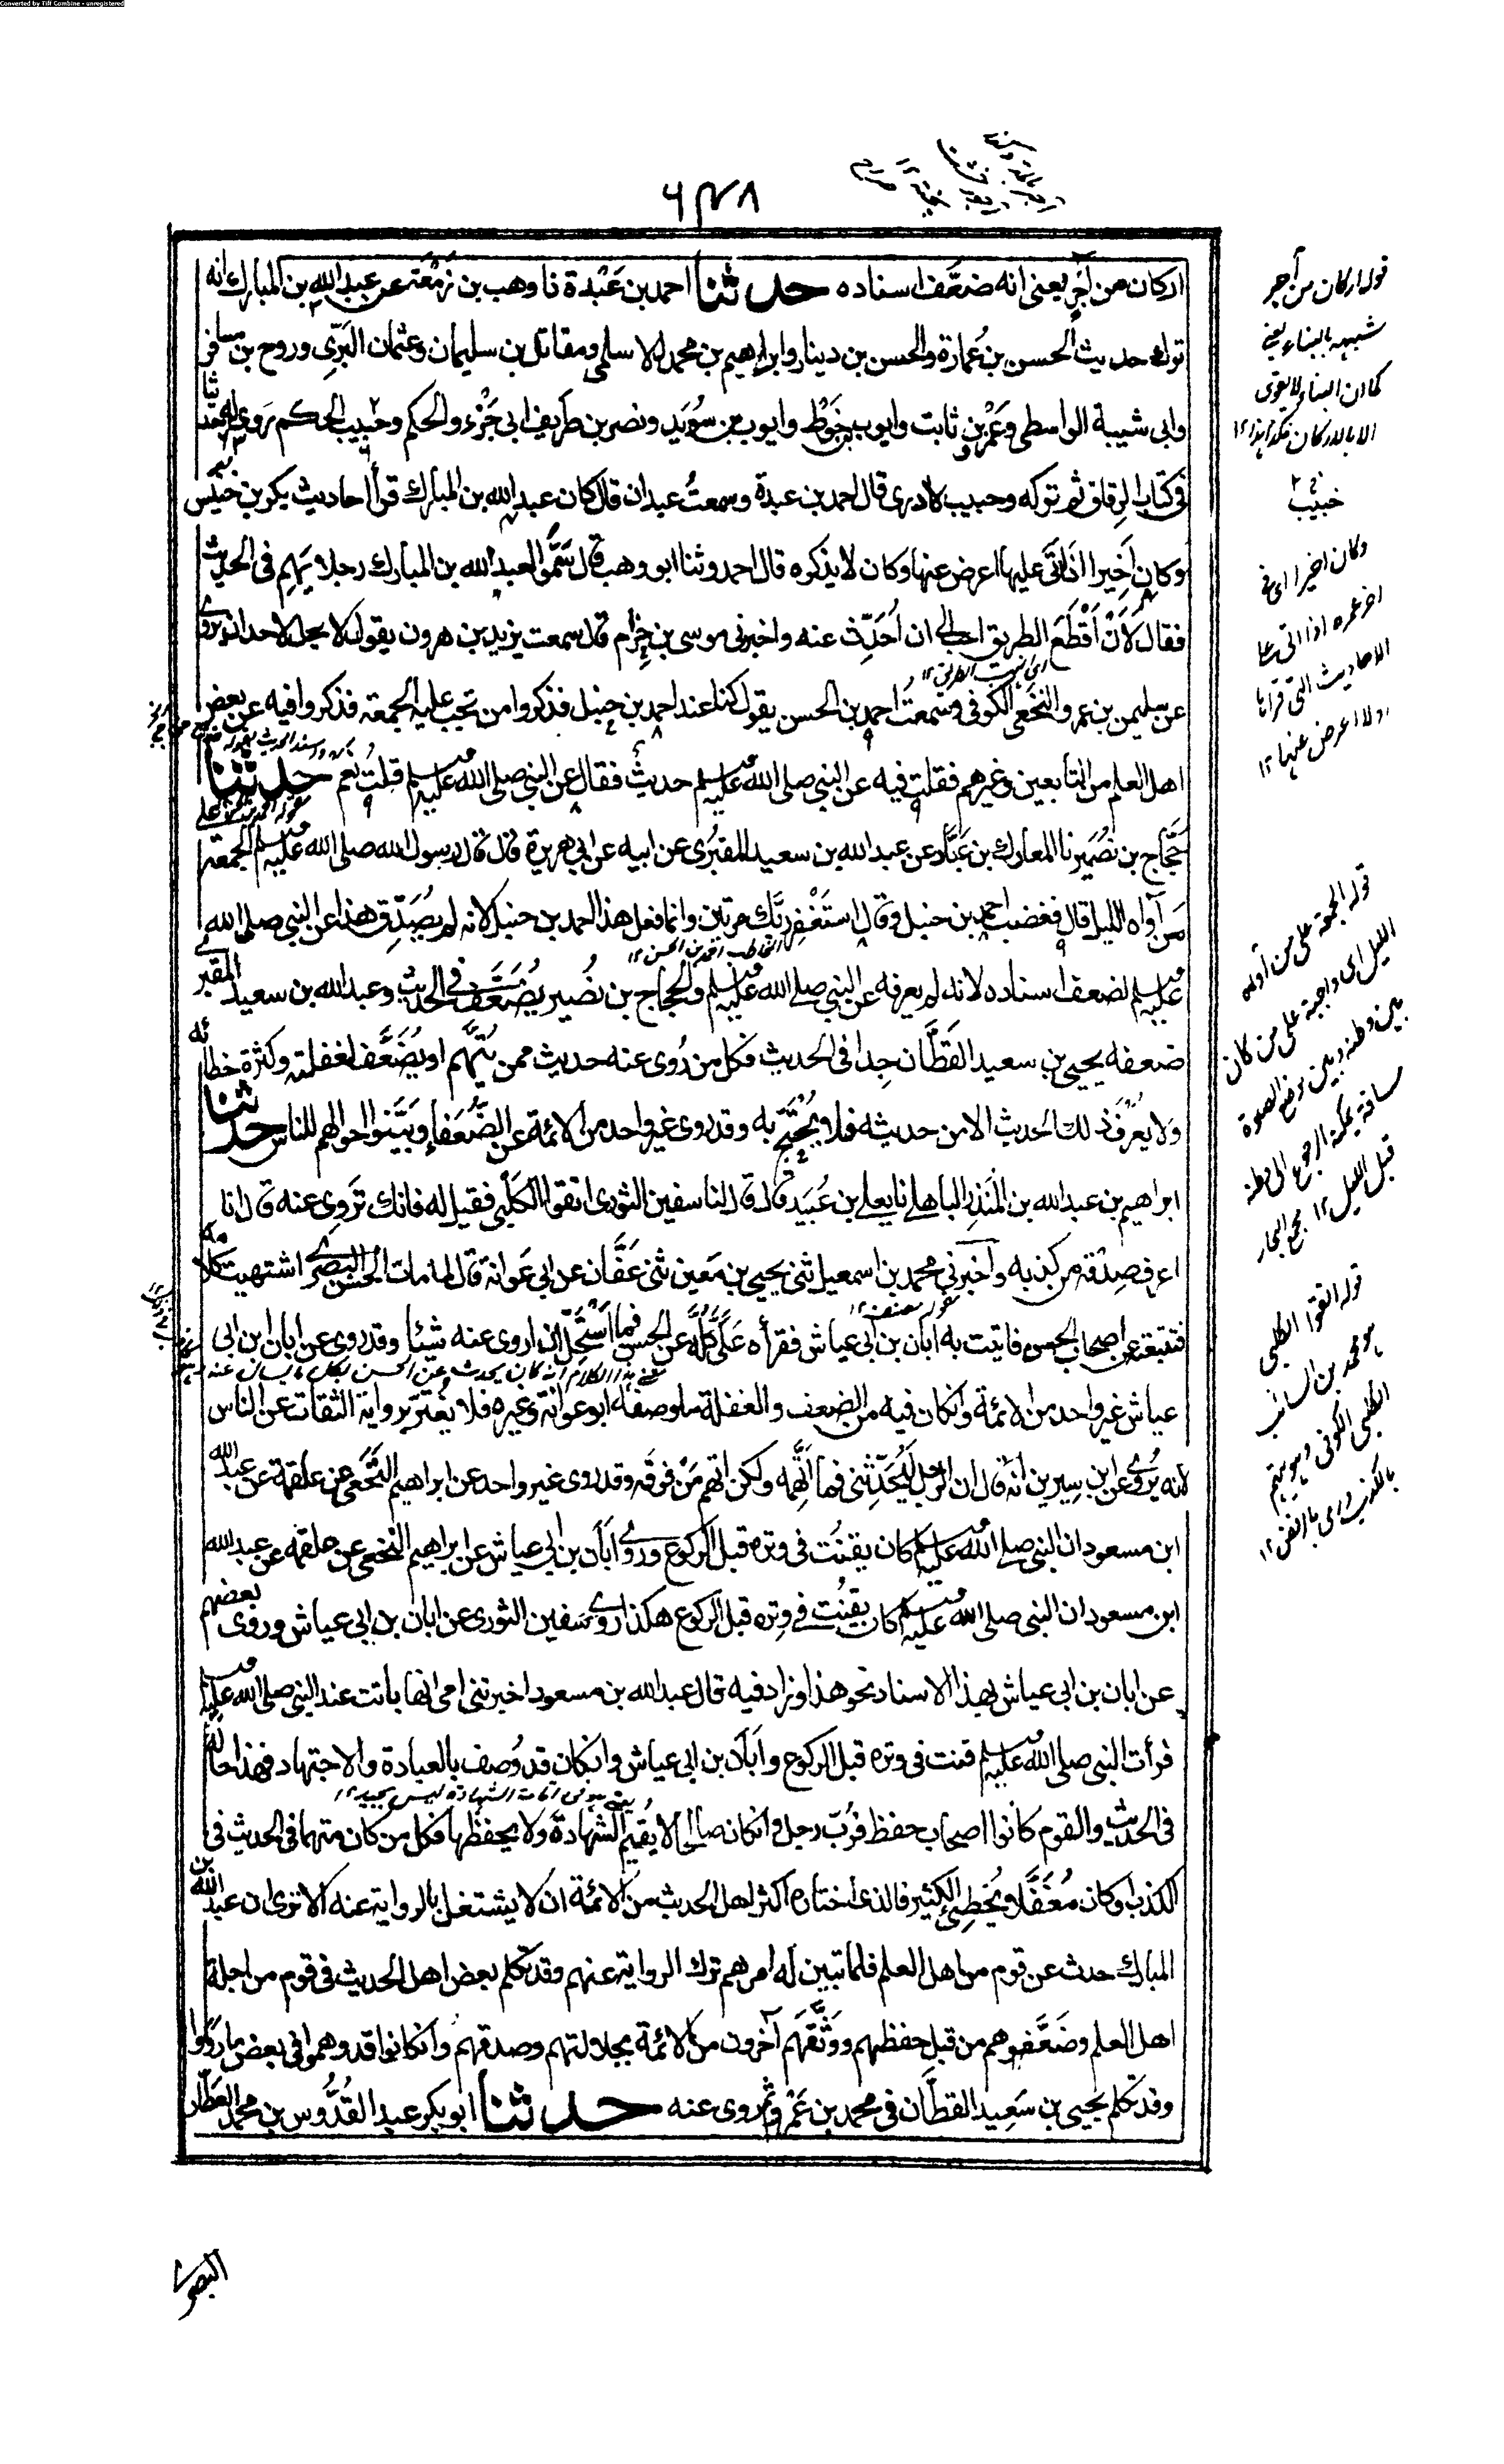 Converted by Tiff Combine - unregistered
۶۴۸
ارکان من آجر یعنی انه ضعّف اسناده حدثنا احمد بن عَبْدة نا وهب بن زَمْعَة عن عبد الله بن المبارك انه
ترك حدیث الحسن بن عُمارة والحسن بن دینار وابراهیم بن محمد الاسلمی ومقاتل بن سلیمان وعثمان البَرّی وروح بن مسافر
وابی شیبة الواسطی وعَمْرو بن ثابت وایوب بن خَوْط وایوب بن سُوَید ونصر بن طَریف ابی جَزْء والحکم وحبیب الحکم رَوی له حدیثا
فی کتاب الرقاق ثم ترکه وحبیب لا ادری قال احمد بن عبدة وسمعتُ عبدان قال کان عبد الله بن المبارك قرأ احادیث بکر بن خنیس
وکان اَخِیرا اذا اَتی علیها اعرض عنها وکان لا یذکره قال احمد وثنا ابو وهب قال سَمَّوا لعبد الله بن المبارك رجلا یَهِم فی الحدیث
فقال لَاَنْ اَقْطَعَ الطریق احب الی ان اُحَدِّث عنه واخبرنی موسی بن حِزام قال سمعت یزید بن هرون یقول لا یحل لاحد ان یروی
عن سلیمن بن عمرو النخَعی الکوفی وسمعت احمد بن الحسن یقول کنا عند احمد بن حنبل فذکروا من تجب علیه الجمعة فذکروا فیه عن بعض
اهل العلم من التابعین وغیرهم فقلت فیه عن النبی صلی الله علیه وسلم حدیث فقال عن النبی صلی الله علیه وسلم قلتُ نعم حدثنا
حَجّاج بن نُصَیر نا المعارك بن عَبّاد عن عبد الله بن سعید المقبُری عن ابیه عن ابی هریرة قال قال رسول الله صلی الله علیه وسلم الجمعة
مَن آواه اللیل قال فغضب احمد بن حنبل وقال اِستَغْفِر ربَّك مرتین وانما فعل هذا احمد بن حنبل لانه لم یُصَدِّق هذا عن النبی صلی الله
علیه وسلم لضعف اسناده لانه لم یعرفه عن النبی صلی الله علیه وسلم والحجاج بن نُصیر یُضَعَّف فی الحدیث وعبد الله بن سعید المقبری
ضعفه یحیی بن سعید القَطّان جدا فی الحدیث فکل من رُوی عنه حدیث ممن یُتَّهم او یُضَعَّف لغفلته وکثرة خطائه
ولا یعرف ذلك الحدیث الا من حدیثه فلا یُحْتَجّ به وقد روی غیر واحد من الائمة عن الضُّعَفاء وبَیَّنوا احوالهم للناس حدثنا
ابراهیم بن عبد الله بن المُنذِر الباهلی نا یعلی بن عُبَید قال قال لنا سفین الثوری اتقوا الکَلْبی فقیل له فانك تَروِی عنه قال انا
اعرف صِدْقَه من کذبه واَخبرنی محمد بن اسمعیل ثنی یحیی بن مَعین ثنی عَفَّان عن ابی عَوانة قال لما مات الحسن البصری اشتهیت کلامه
فتتبعته عن اصحاب الحسن فاتیت به ابان بن ابی عیاش فقرأه عَلَیَّ کلَّه عن الحسن فما اَستحل ان اروی عنه شیئا وقد روی عن ابان ابن ابی
عیاش غیر واحد من الائمة وان کان فیه من الضعف والغفلة ما وصفه ابو عوانة وغیره فلا یغتر بروایة الثقات عن الناس
لانه یُروی عن ابن سیرین انه قال ان الرجل لیُحَدِّثنی فما اَتَّهِمه ولکن اتهم مَنْ فوقه وقد روی غیر واحد عن ابراهیم النَّخَعی عن علقمة عن عبد الله
ابن مسعود ان النبی صلی الله علیه وسلم کان یقنُت فی وتره قبل الرکوع وروی اَبان بن ابی عیاش عن ابراهیم النخعی عن علقمة عن عبد الله
ابن مسعود ان النبی صلی الله علیه وسلم کان یقنُت فی وتره قبل الرکوع هکذا روی سفین الثوری عن ابان بن ابی عیاش وروی بعضهم
عن ابان بن ابی عیاش بهذا الاسناد نحو هذا وزاد فیه قال عبد الله بن مسعود اخبرتنی امی انها باتت عند النبی صلی الله علیه وسلم
فرأت النبی صلی الله علیه وسلم قنت فی وتره قبل الرکوع واَبان بن ابی عیاش وان کان قد وُصف بالعبادة والاجتهاد فهذا حاله
فی الحدیث والقوم کانوا اصحاب حفظ فرُبّ رجل وان کان صالحا لا یُقیم الشهادة ولا یحفظها فکل من کان متهما فی الحدیث فی
الکذب او کان مُغَفَّلا یُخطِئ الکثیر فالذی اختاره اکثر اهل الحدیث من الائمة ان لا یشتغل بالروایة عنه الا تری ان عبد الله بن
المبارك حدث عن قوم من اهل العلم فلما تبین له امرهم ترك الروایة عنهم وقد تکلم بعض اهل الحدیث فی قوم من اجلة
اهل العلم وضَعَّفوهم من قبل حفظهم ووَثَّقَهم آخرون من الائمة بجلالتهم وصدقهم وان کانوا قد وهموا فی بعض ما رووا
وقد تکلم یحیی بن سَعِید القطَّان فی محمد بن عَمْرو ثم روی عنه حدثنا ابو بکر عبد القُدُّوس بن محمد العَطّار
البصری
قوله ارکان من آجر
شبهه بالبناء یعنی
کما ان البناء لا یقوی
الا بالارکان فکذا هذا ۱۲
خبیب
وکان اخیرا ای فی
اخر عمره اذا اتی علی
الاحادیث التی قراها
اولا اعرض عنها ۱۲
قوله الجمعة علی من آواه
اللیل ای واجبة علی من کان
بین وطنه وبین موضع الصلوة
مسافة یمکنه الرجوع الی وطنه
قبل اللیل ۱۲ مجمع البحار
قوله اتقوا الکلبی
هو محمد بن السائب
الکلبی الکوفی وهو متهم
بالکذب ورمی بالرفض ۱۲